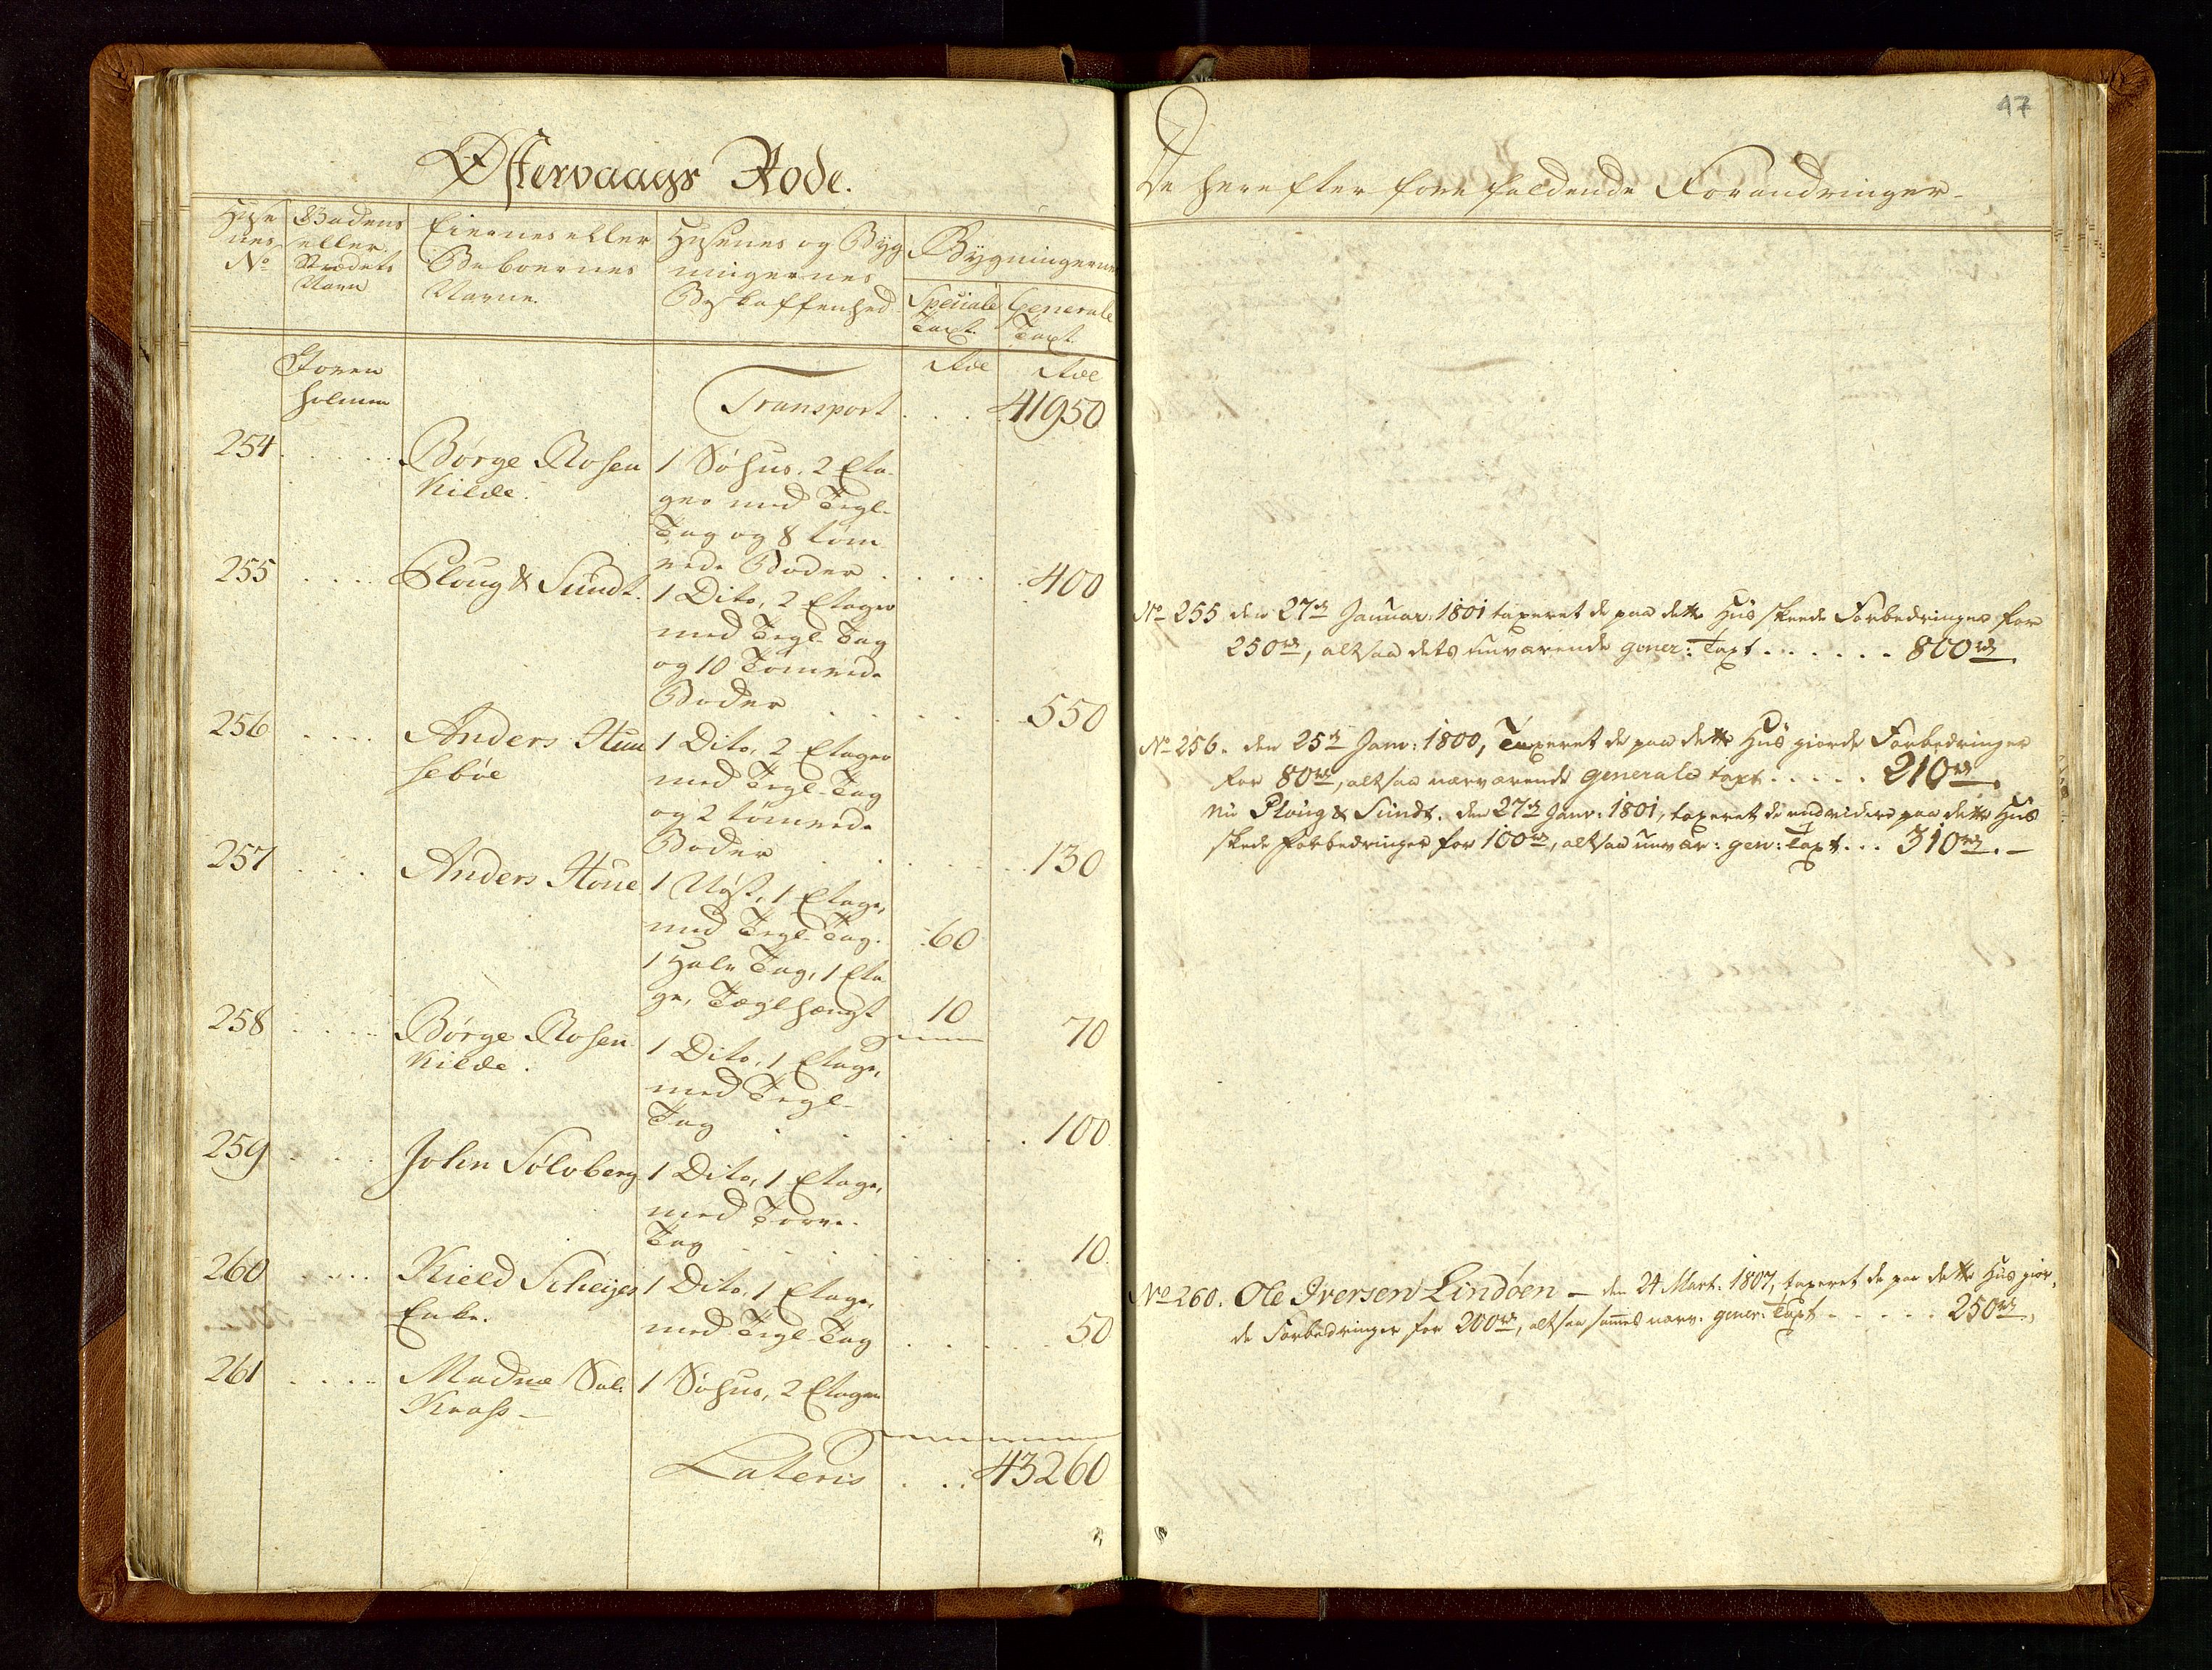 Østervaags Rode.
Huse
nes
No
Gadens
eller
Strædets
Navn
Eiernes eller
Beboernes
Navne.
Husenes og Byg
ningernes
Beskaffenhed
Bygningernes
Speciale
Taxt.
Generale
Taxt.
Rdl
Rdl
Holmen
Transport . . . 41950
254 . . . . .
Børge Rosen
Kilde.
1 Søhus, 2 Eta
ger med Tegl-
Tag og 8 tøm
rede Boder . . . . . 400
255 . . . .
Ploug & Sundt.
1 Dito, 2 Etager
med Tegl Tag
og 10 Tømrede
Boder . . . . . 550
256 . . . .
Anders Huu
sebøe
1 Dito, 2 Etager
med Tegl-Tag
og 2 tømrede
Boder . . . . . 130
257 . . .
Anders Houe
1 Nøst, 1 Etage,
med Tegl-Tag. 60
1 Halv Tag, 1 Eta
ge, Teglhængt 10
70
258 . . . .
Børge Rosen
Kilde.
1 Dito, 1 Etage,
med Tegl-
Tag . . . . . 100
259 . . . .
John Sølvberg
1 Dito, 1 Etage,
med Torve-
Tag . . . . . 10
260 . . . .
Kield Scheijes
Enke.
1 Dito, 1 Etage,
med Tegl-Tag . . . . 50
261 . . . .
Madme Sal:
Krass-
1 Søhus, 2 Etager
Lateris . . . 43260
47
De herefter forefaldende Forandringer-
No 255 den 27de Januar: 1801 taxeret de paa dette Huus skeede Forbedringer for
250rd, altsaa dets nuværende gener: Taxt . . . . . . 800rd.
No 256. den 25de Janv: 1800, Taxeret de paa dette Huus giorde Forbedringer
for 80rd, altsaa nærværende generale taxt . . . . . 210rd.
nu Ploug & Sundt. den 27de Janv: 1801, taxeret de endvidere paa dette Huus
skede Forbedringer for 100rd, altsaa nuvær: gen: Taxt . . . 310rd. -
No 260. Ole Iversen Lindøen - den 24 Mart: 1807, taxeret de paa dette Huus gior-
de Forbedringer for 200rd, altsaa sammes nærv. gener: Taxt - - - - - 250rd.